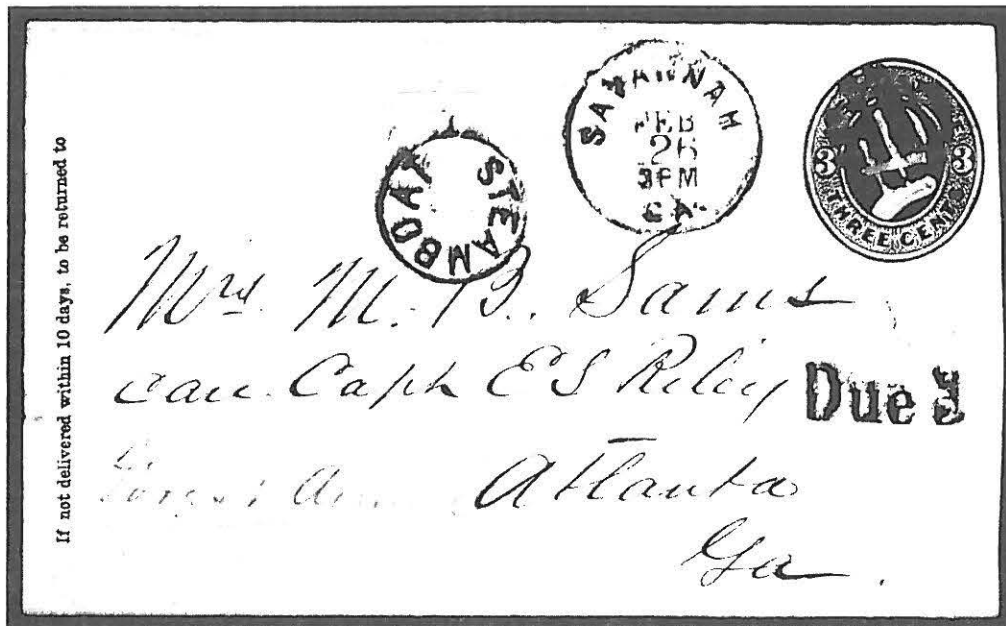 If not delivered within 10 days, to be returned to
STEAMBOAT
SAVANNAH
FEB
26
3 PM
GA
3 3
THREE CENTS
Mrs. M. B. Sams
care Capt E S Riley
Due 3
Atlanta
Ga.